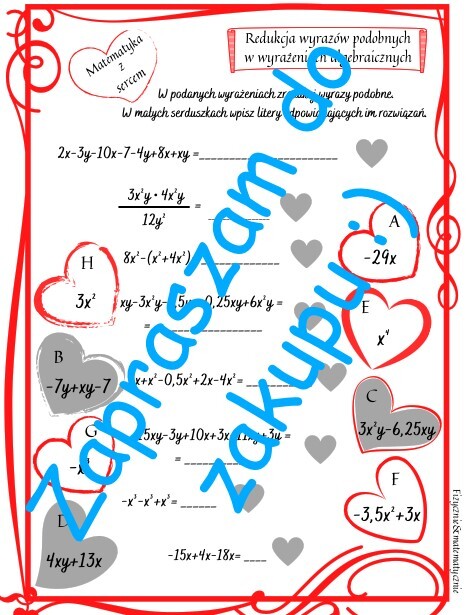 Matematyka
z
sercem
Redukcja wyrazów podobnych
w wyrażeniach algebraicznych
W podanych wyrażeniach zredukuj wyrazy podobne.
W małych serduszkach wpisz litery odpowiadających im rozwiązań.
2x-3y-10x-7-4y+8x+xy=
3x²y · 4x²y
12y²
=
8x²-(x²+4x²)
xy-3x²y- 0,25xy+6x²y =
=
x+x²-0,5x²+2x-4x²=
xy-3y+10x+3x +3y=
=
-x³-x³+x³=
-15x+4x-18x=
A
-29x
H
3x²
E
x⁴
B
-7y+xy-7
C
3x²y-6,25xy
G
F
-3,5x²+3x
D
4xy+13x
Zapraszam do
zakupu :)
Fizycznie&matematycznie